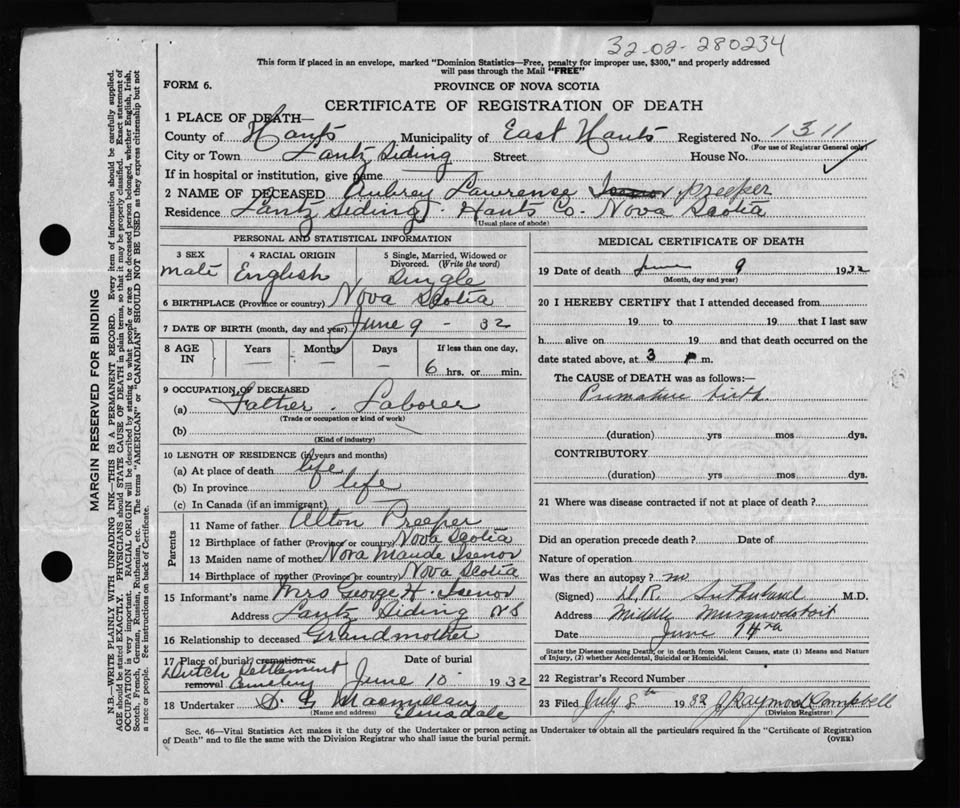 32-02-280234
This form if placed in an envelope, marked "Dominion Statistics—Free, penalty for improper use, $300," and properly addressed
will pass through the Mail "FREE"
FORM 6.
PROVINCE OF NOVA SCOTIA
CERTIFICATE OF REGISTRATION OF DEATH
1 PLACE OF DEATH—
County of Hants Municipality of East Hants Registered No. 1311
(For use of Registrar General only)
City or Town Lantz Siding Street House No.
If in hospital or institution, give name
2 NAME OF DECEASED Aubrey Lawrence Isenor Preeper
Residence Lantz Siding Hants Co. Nova Scotia
(Usual place of abode)
PERSONAL AND STATISTICAL INFORMATION
3 SEX 4 RACIAL ORIGIN 5 Single, Married, Widowed or
Divorced. (Write the word)
male English Single
6 BIRTHPLACE (Province or country) Nova Scotia
7 DATE OF BIRTH (month, day and year) June 9 - 32
8 AGE IN Years Months Days If less than one day,
— — — 6 hrs. or min.
9 OCCUPATION OF DECEASED
(a) Father. Laborer
(Trade or occupation or kind of work)
(b)
(Kind of industry)
10 LENGTH OF RESIDENCE (in years and months)
(a) At place of death life
(b) In province life
(c) In Canada (if an immigrant)
Parents
11 Name of father Alton Preeper
12 Birthplace of father (Province or country) Nova Scotia
13 Maiden name of mother Nora Maude Isenor
14 Birthplace of mother (Province or country) Nova Scotia
15 Informant's name Mrs George H. Isenor
Address Lantz Siding N.S
16 Relationship to deceased Grandmother
17 Place of burial cremation or removal Date of burial
Dutch Settlement Cemetery June 10 1932
18 Undertaker D. G Macmillan
(Name and address) Elmsdale
MEDICAL CERTIFICATE OF DEATH
19 Date of death June 9 1932
(Month, day and year)
20 I HEREBY CERTIFY that I attended deceased from
19 to 19 that I last saw
h alive on 19 and that death occurred on the
date stated above, at 3 P m.
The CAUSE of DEATH was as follows:—
Premature birth
(duration) yrs mos dys.
CONTRIBUTORY
(duration) yrs mos dys.
21 Where was disease contracted if not at place of death?
Did an operation precede death? Date of
Nature of operation
Was there an autopsy? no
(Signed) D.R. Sutherland M.D.
Address Middle Musquodoboit
Date June
State the Disease Causing Death, or in death from Violent Causes, state (1) Means and Nature
of Injury, (2) whether Accidental, Suicidal or Homicidal.
22 Registrar's Record Number
23 Filed July 8th 1932 J Raymond Campbell
(Division Registrar)
Sec. 46—Vital Statistics Act makes it the duty of the Undertaker or person acting as Undertaker to obtain all the particulars required in the "Certificate of Registration
of Death" and to file the same with the Division Registrar who shall issue the burial permit.
(OVER)
MARGIN RESERVED FOR BINDING
N.B.—WRITE PLAINLY WITH UNFADING INK—THIS IS A PERMANENT RECORD. Every item of information should be carefully supplied.
AGE should be stated EXACTLY. PHYSICIANS should STATE CAUSE OF DEATH in plain terms, so that it may be properly classified. Exact statement of
OCCUPATION is very important. RACIAL ORIGIN will be described by stating to what people or race the deceased person belonged, whether English, Irish,
Scotch, French, German, Russian, Ruthenian, etc. The terms "AMERICAN" or "CANADIAN" SHOULD NOT BE USED as they express citizenship but not
a race or people. See instructions on back of Certificate.